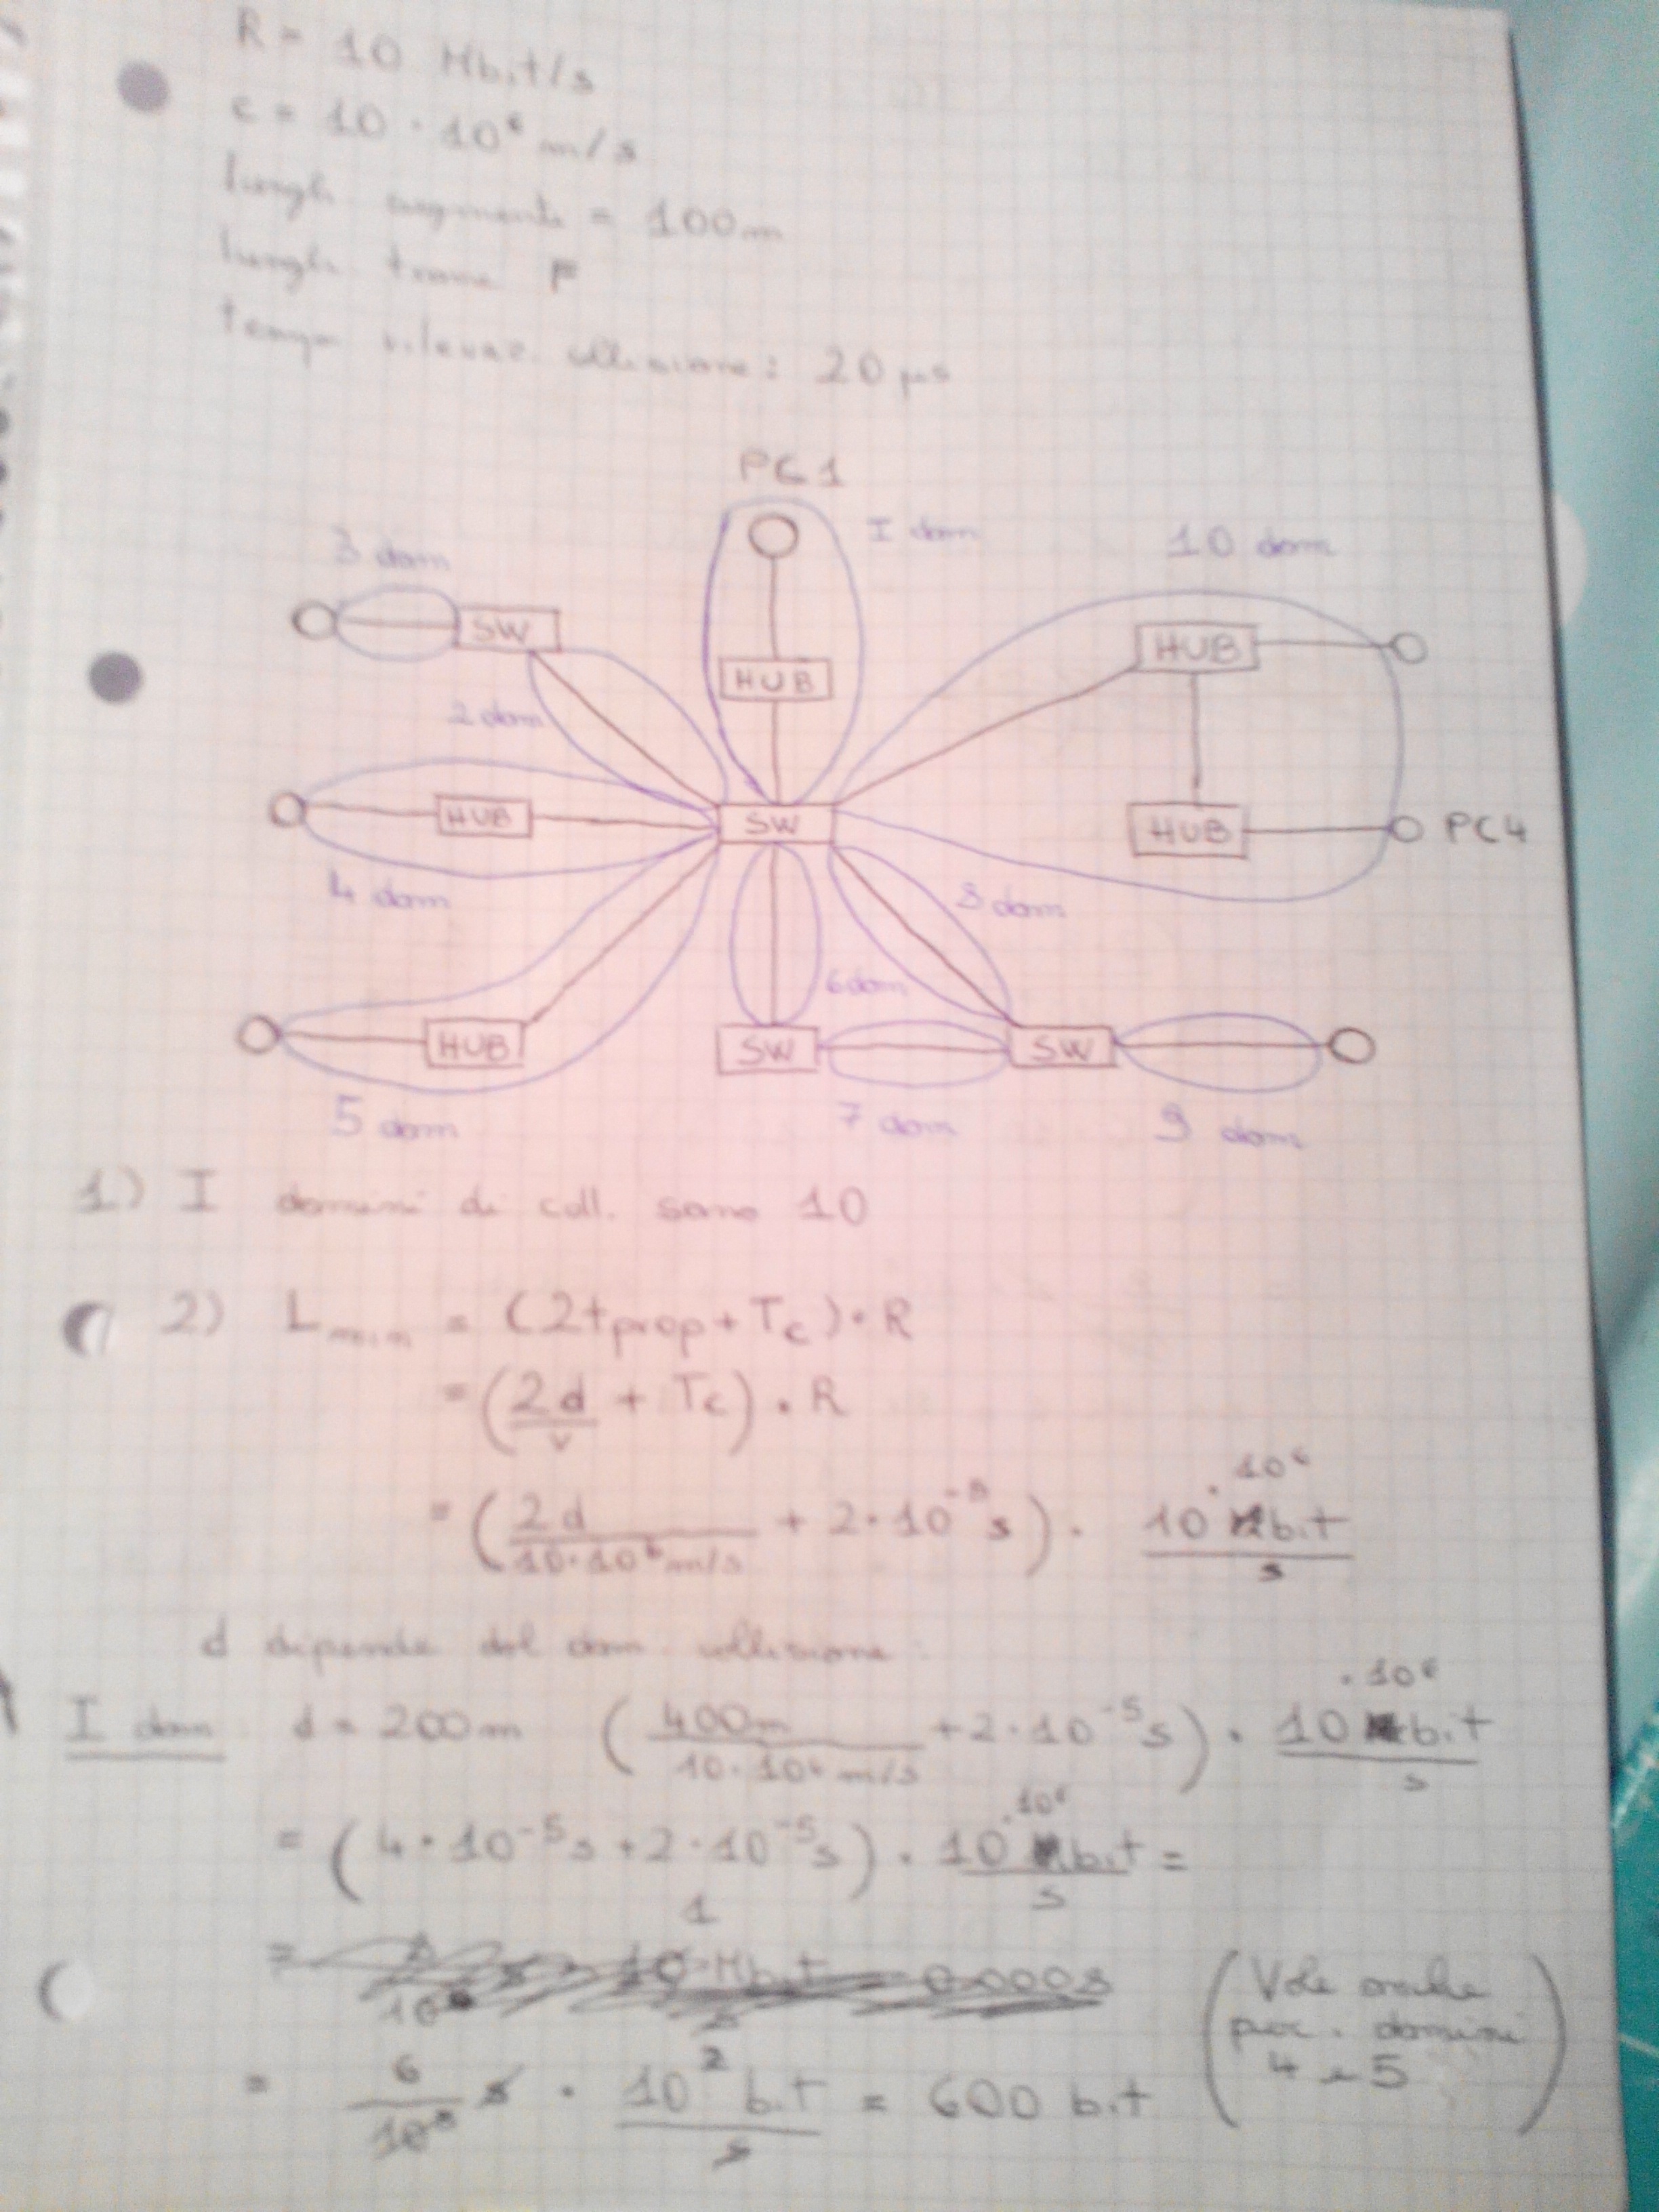 R = 10 Mbit/s
c = 10 · 10⁶ m/s
lungh segmento = 100m
lungh. trama F
tempo rilevaz. collisione: 20 µs
PC1
I dom
10 dom
3 dom
SW
HUB
HUB
2 dom
HUB
SW
HUB
PC4
4 dom
8 dom
6 dom
HUB
SW
SW
5 dom
7 dom
9 dom
1) I domini di coll. sono 10
2) Lmin = (2tprop + Tc) · R
= (2d/v + Tc) · R
= (2d/10·10⁶ m/s + 2·10⁻⁵ s) · 10·10⁶ bit/s
d dipende dal dom. collisione:
I dom d = 200m (400m/10·10⁶ m/s + 2·10⁻⁵ s) · 10·10⁶ bit/s
= (4·10⁻⁵ s + 2·10⁻⁵ s) · 10·10⁶ bit/s =
= 6/10⁵ s · 10⁷ bit/s = 600 bit
(Vale anche
per i domini
4 e 5)